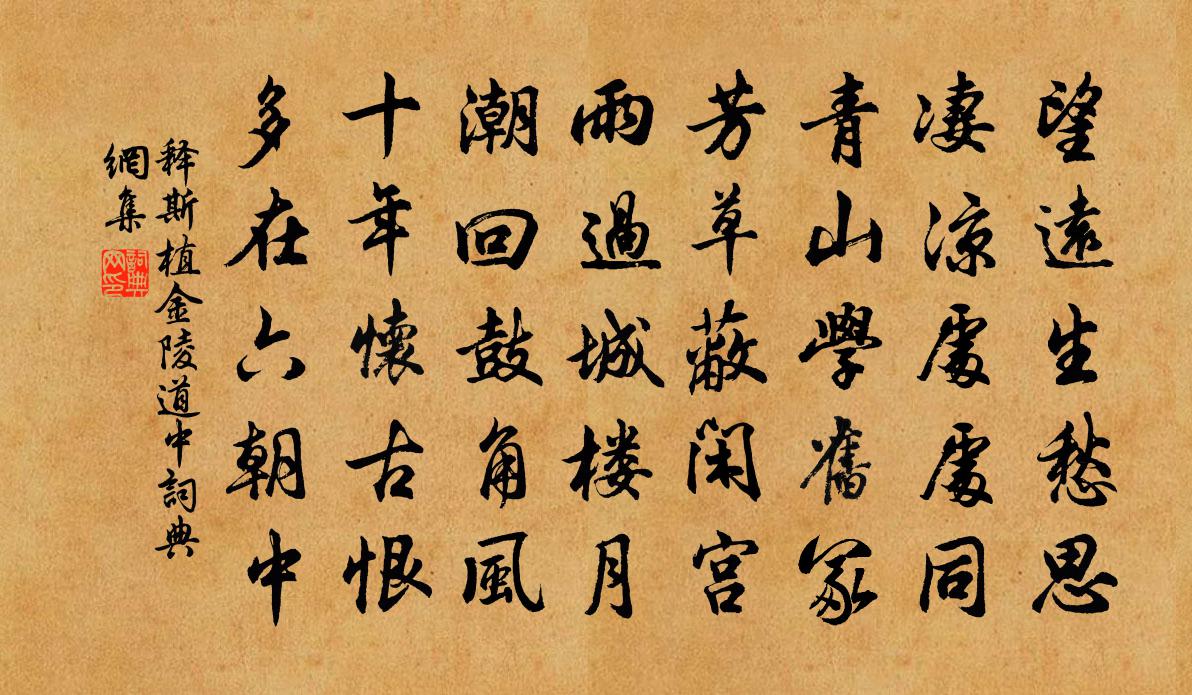 望遠生愁思
凄涼處處同
青山學舊冢
芳草蔽閑宫
雨過城楼月
潮回鼓角風
十年懷古恨
多在六朝中
释斯植金陵道中詞典
網集
詞典
网印